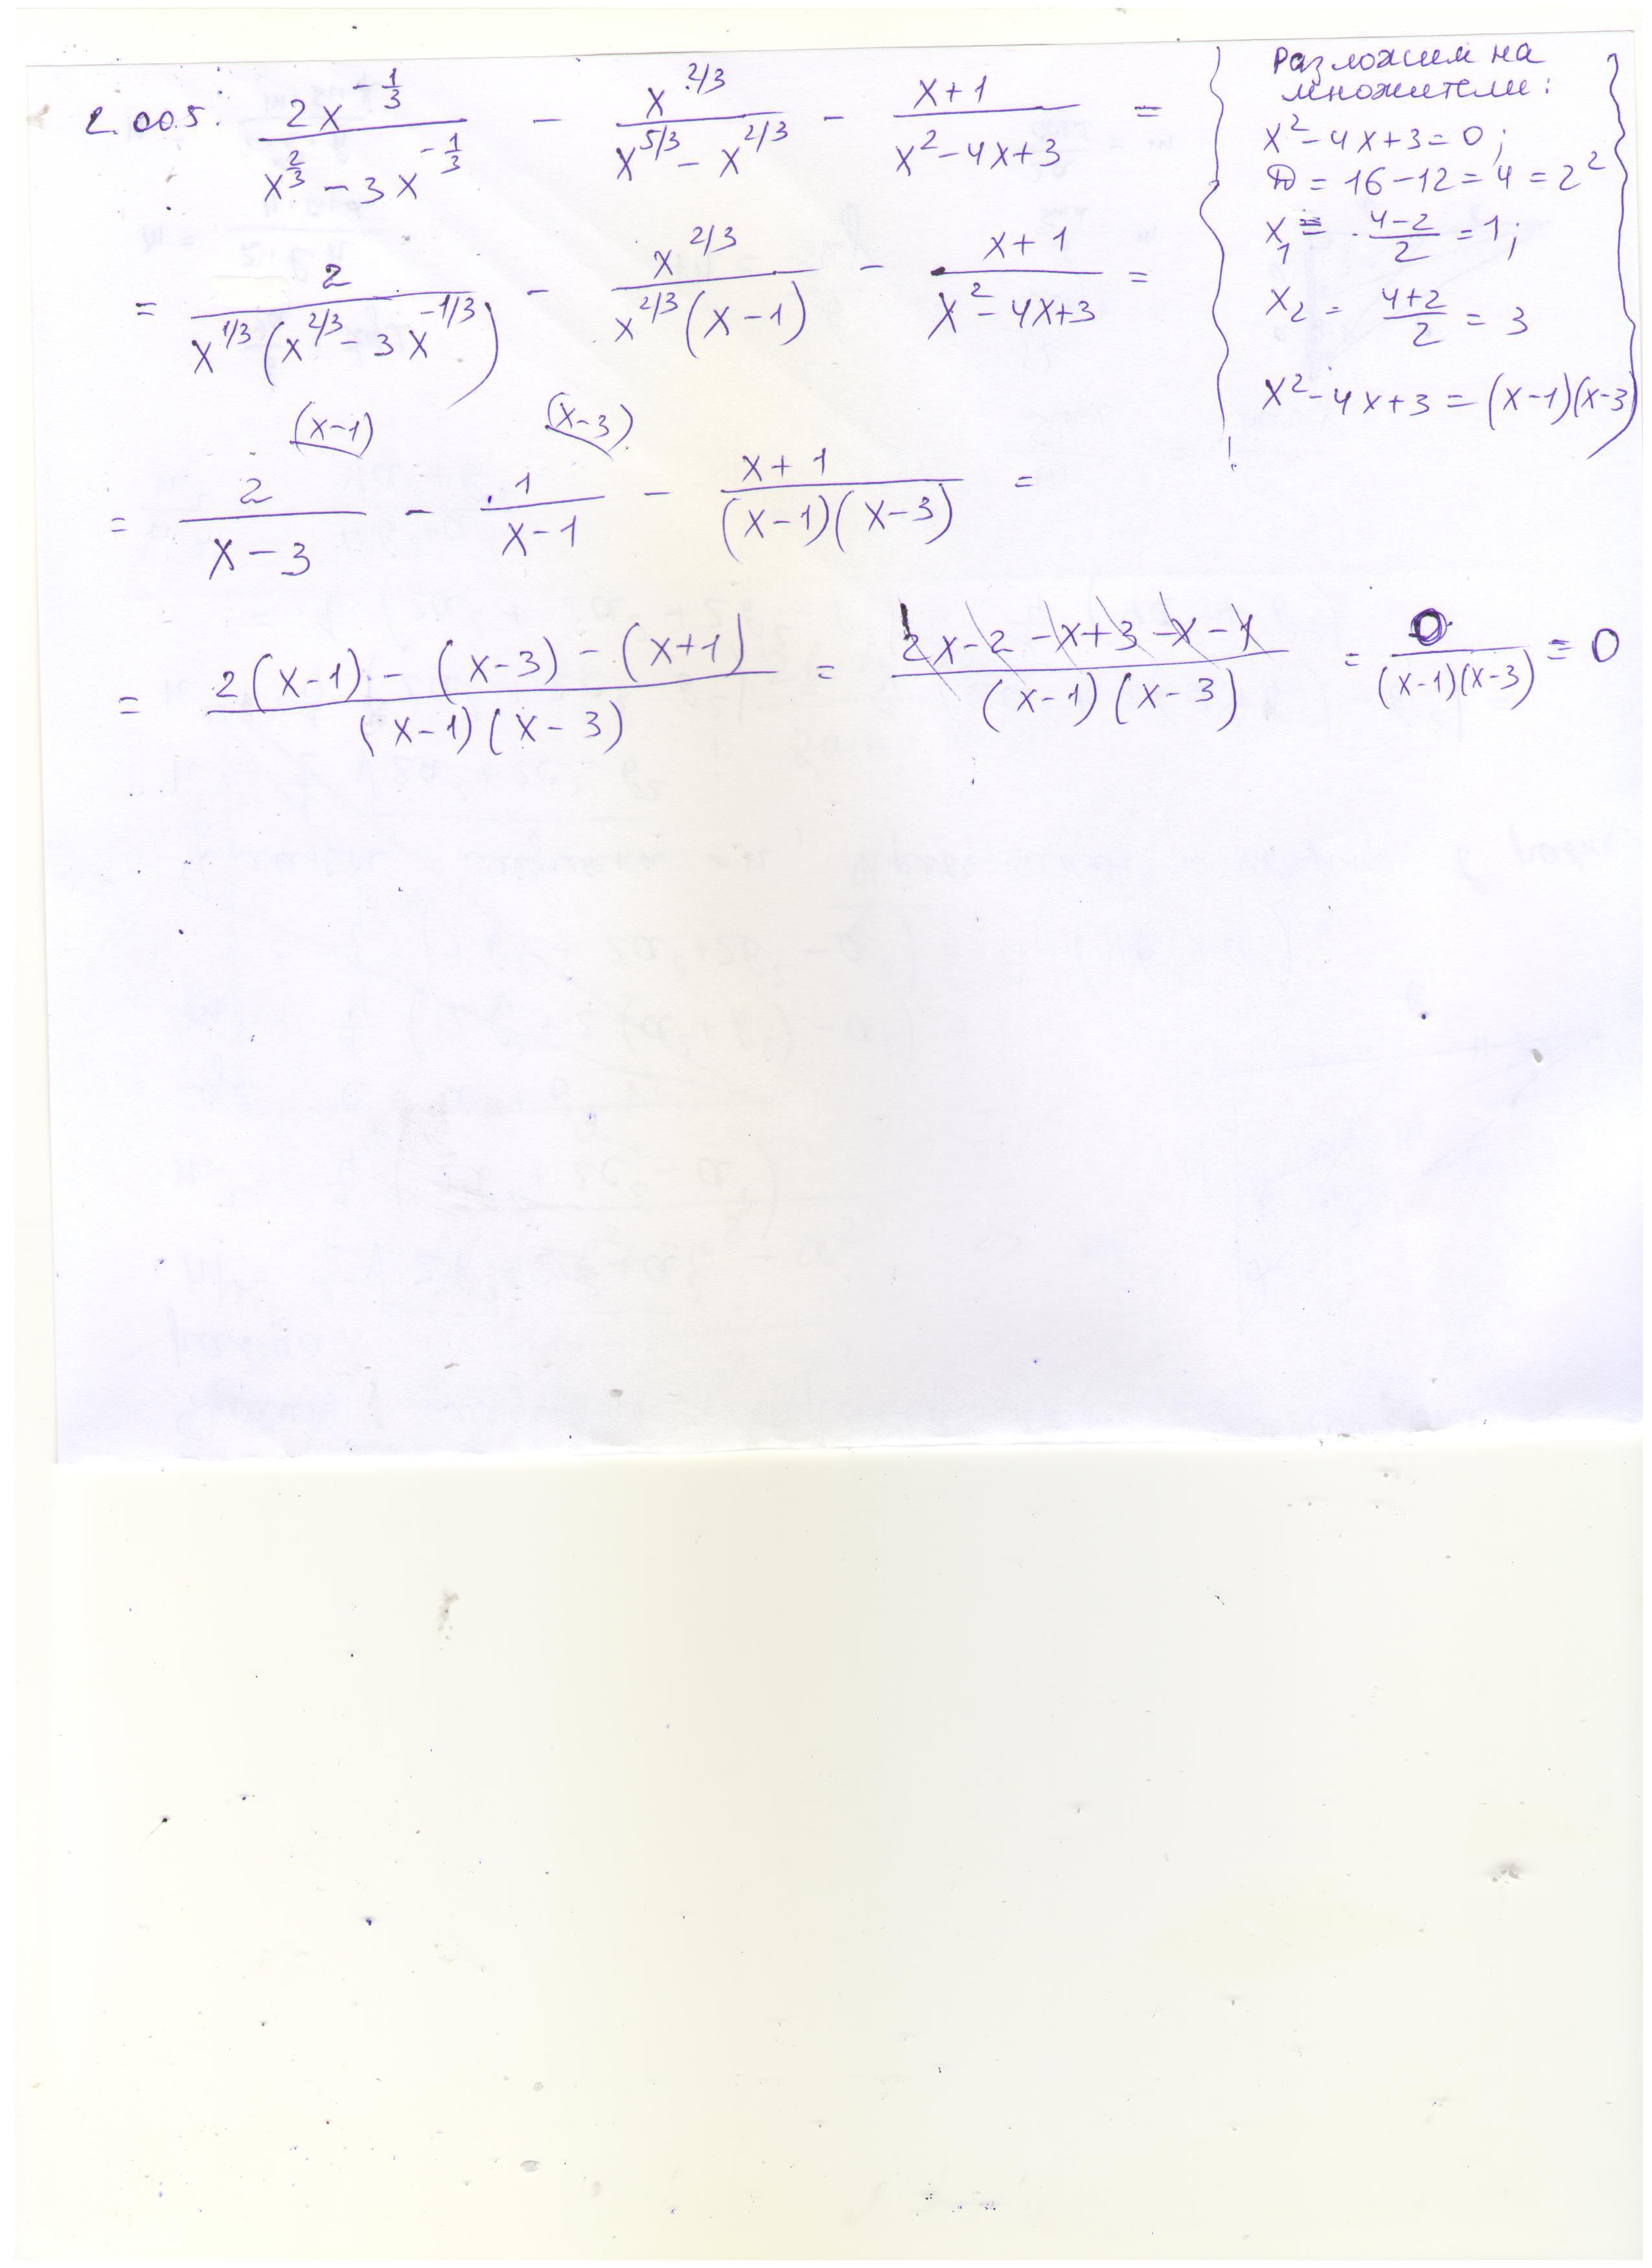 2.005. \frac{2x^{-\frac{1}{3}}}{x^{\frac{2}{3}} - 3x^{-\frac{1}{3}}} - \frac{x^{2/3}}{x^{5/3} - x^{2/3}} - \frac{x+1}{x^2-4x+3} =
= \frac{2}{x^{1/3}(x^{2/3} - 3x^{-1/3})} - \frac{x^{2/3}}{x^{2/3}(x-1)} - \frac{x+1}{x^2-4x+3} =
(x-1) (x-3)
= \frac{2}{x-3} - \frac{1}{x-1} - \frac{x+1}{(x-1)(x-3)} =
= \frac{2(x-1) - (x-3) - (x+1)}{(x-1)(x-3)} = \frac{2x-2-x+3-x-1}{(x-1)(x-3)} = \frac{0}{(x-1)(x-3)} = 0
Разложим на
множители:
x^2-4x+3=0;
D = 16-12 = 4 = 2^2
x_1 = \frac{4-2}{2} = 1;
x_2 = \frac{4+2}{2} = 3
x^2-4x+3 = (x-1)(x-3)